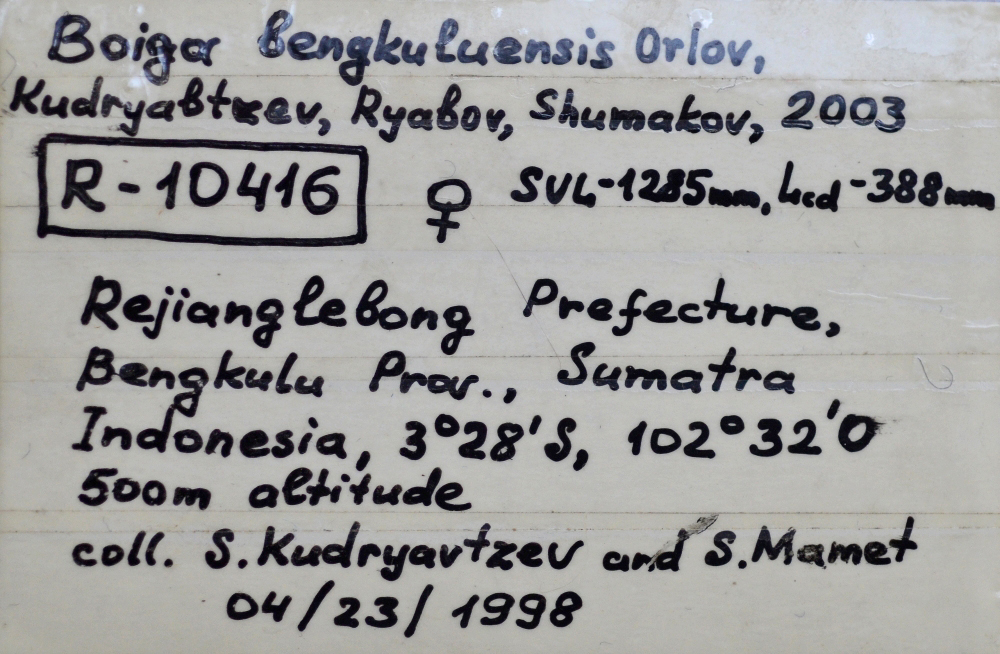 Boiga bengkuluensis Orlov,
Kudryabtzev, Ryabov, Shumakov, 2003
R-10416 ♀ SVL-1285mm, Lcd-388mm
Rejianglebong Prefecture,
Bengkulu Prov., Sumatra
Indonesia, 3°28'S, 102°32'O
500m altitude
coll. S.Kudryavtzev and S.Mamet
04/23/1998